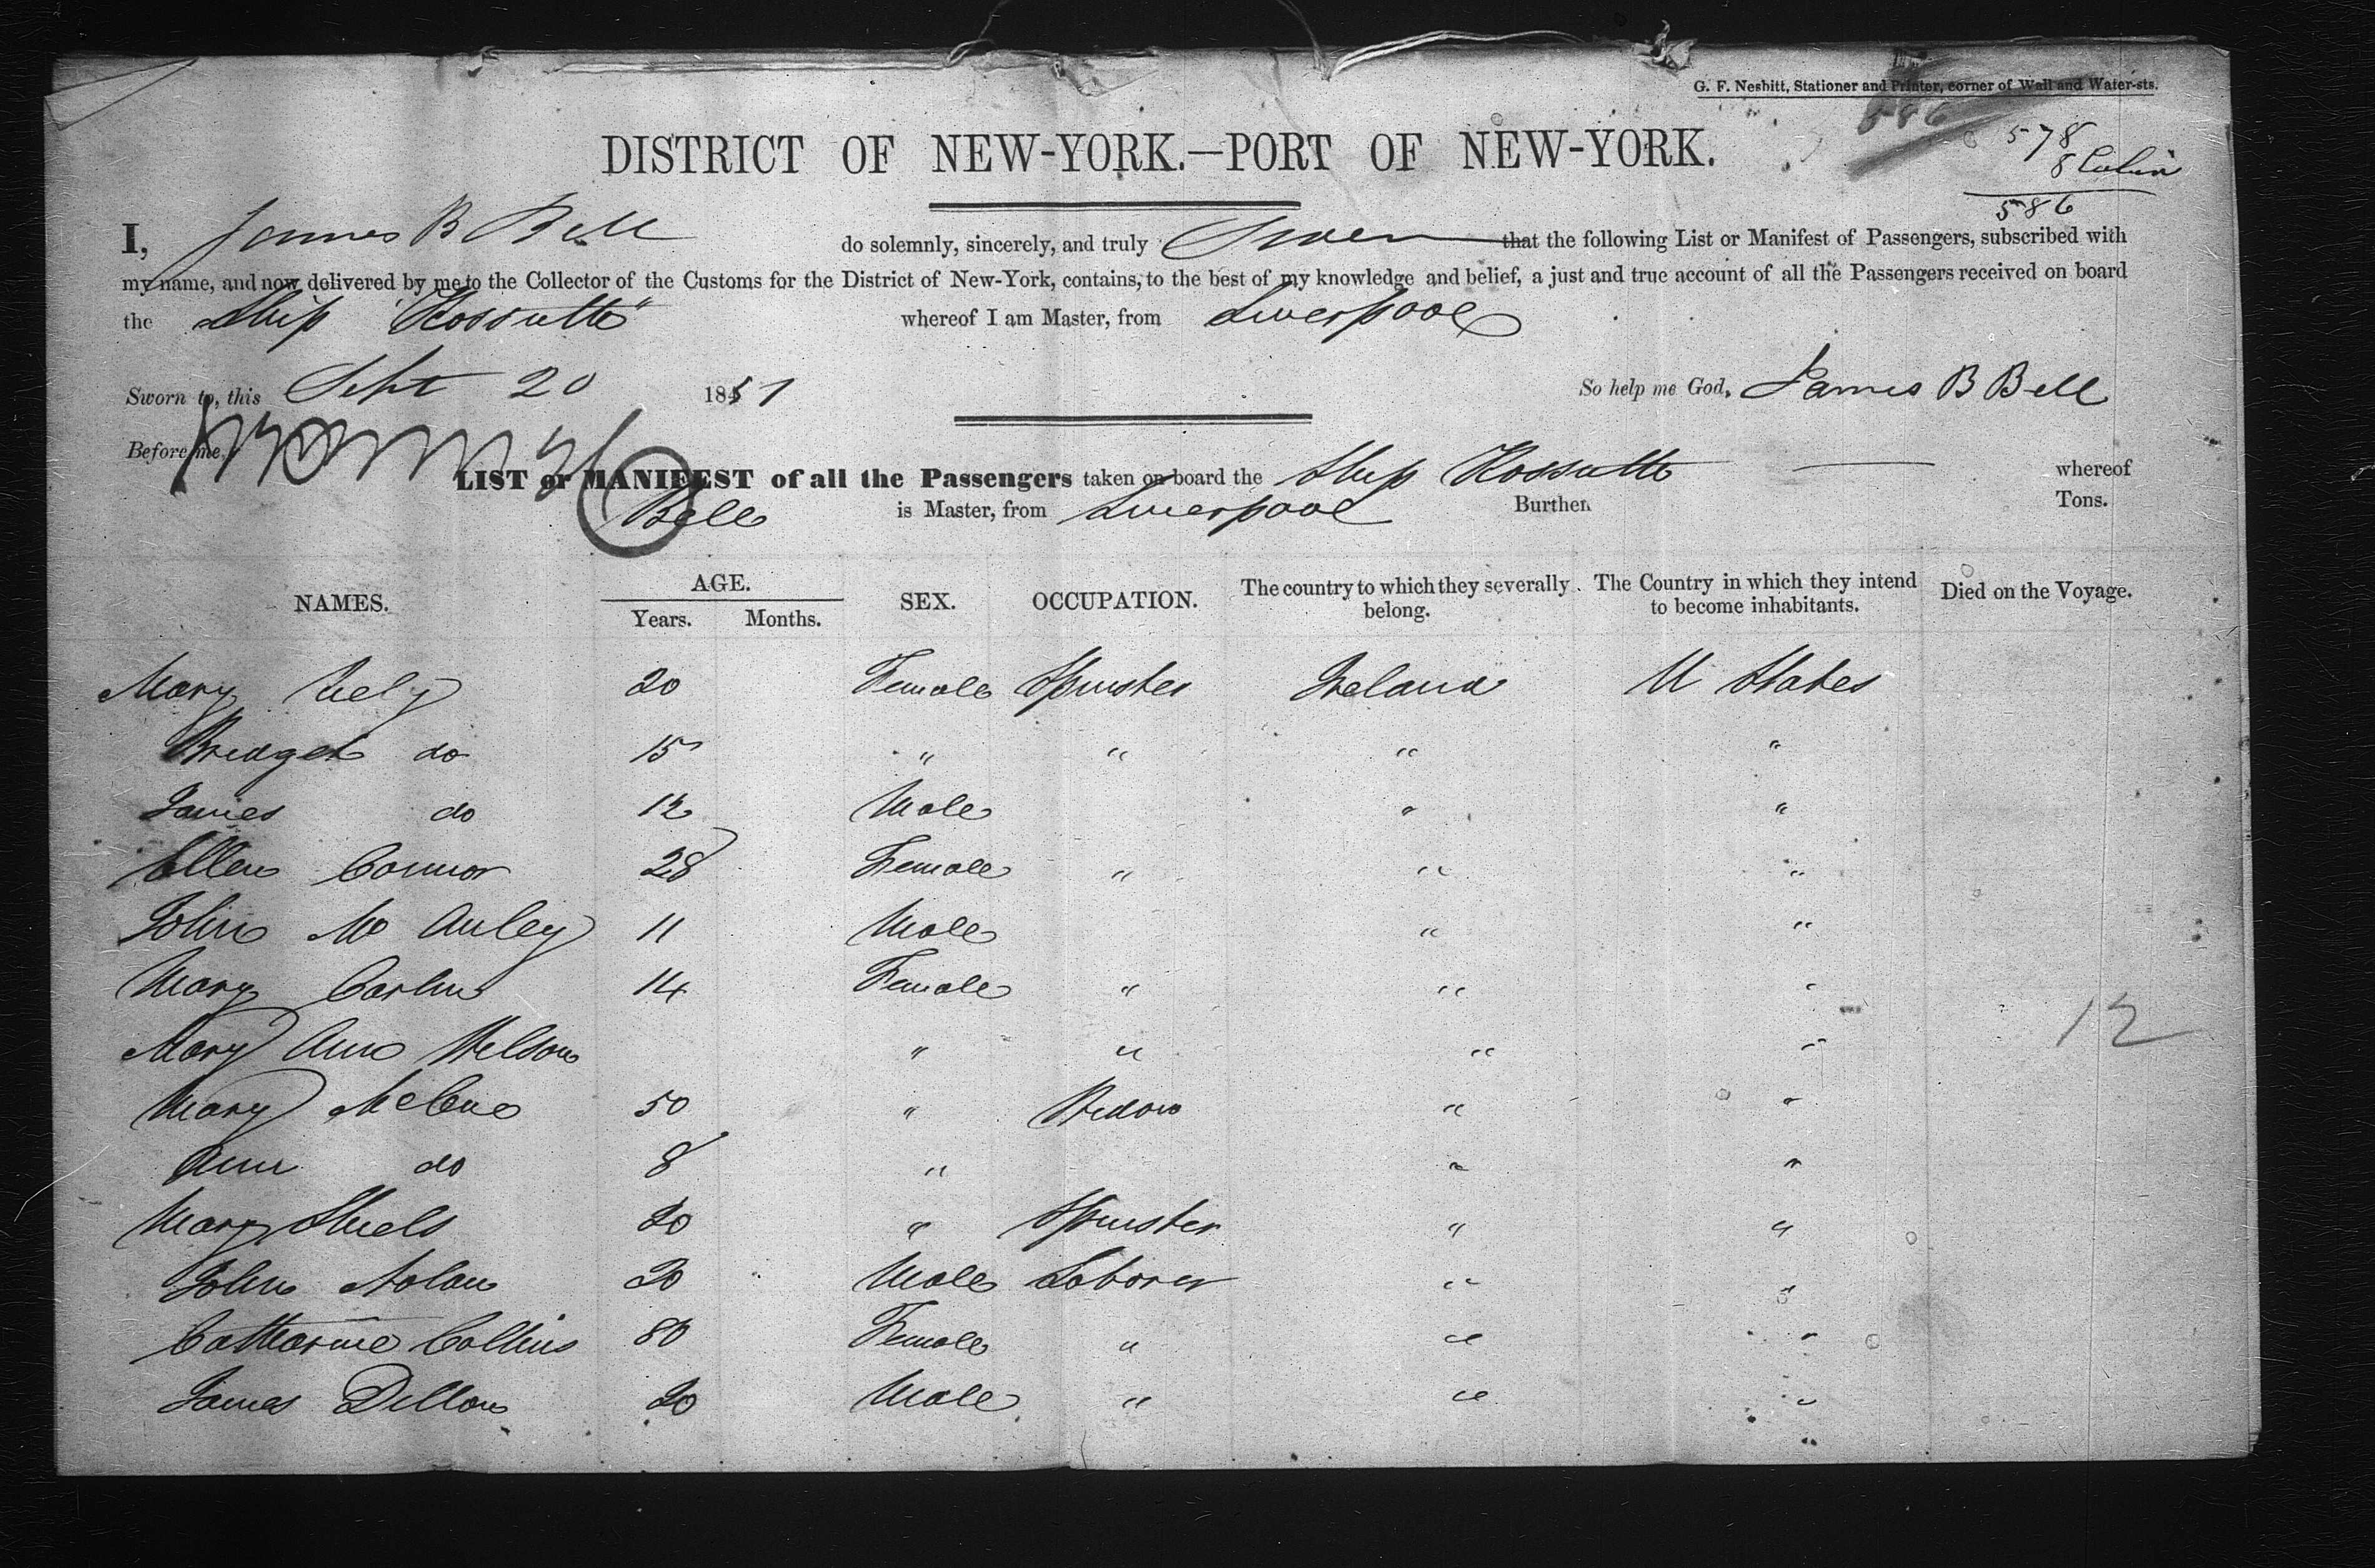 G. F. Nesbitt, Stationer and Printer, corner of Wall and Water-sts.
586
578
8 Cabin
586
DISTRICT OF NEW-YORK.—PORT OF NEW-YORK.
I, James B Bell do solemnly, sincerely, and truly Swear that the following List or Manifest of Passengers, subscribed with
my name, and now delivered by me to the Collector of the Customs for the District of New-York, contains, to the best of my knowledge and belief, a just and true account of all the Passengers received on board
the Ship "Kossuth" whereof I am Master, from Liverpool
Sworn to, this Sept 20 1851 So help me God, James B Bell
Before me,
LIST or MANIFEST of all the Passengers taken on board the Ship Kossuth whereof
Bell is Master, from Liverpool Burthen Tons.
NAMES. AGE. SEX. OCCUPATION. The country to which they severally belong. The Country in which they intend to become inhabitants. Died on the Voyage.
Years. Months.
Mary 20 Female Spinster Ireland U States
Bridget do 15 " " " "
James do 12 Male " "
Ellen Connor 28 Female " " "
John Mc Auley 11 Male " "
Mary Carlin 14 Female " " "
Mary Ann Wilson " " " "
Mary McCue 50 " Widow " "
Ann do 8 " " "
Mary Shiels 20 " Spinster " "
John Nolan 20 Male Laborer " "
Catharine Collins 80 Female " " "
James Dillon 20 Male " " "
12